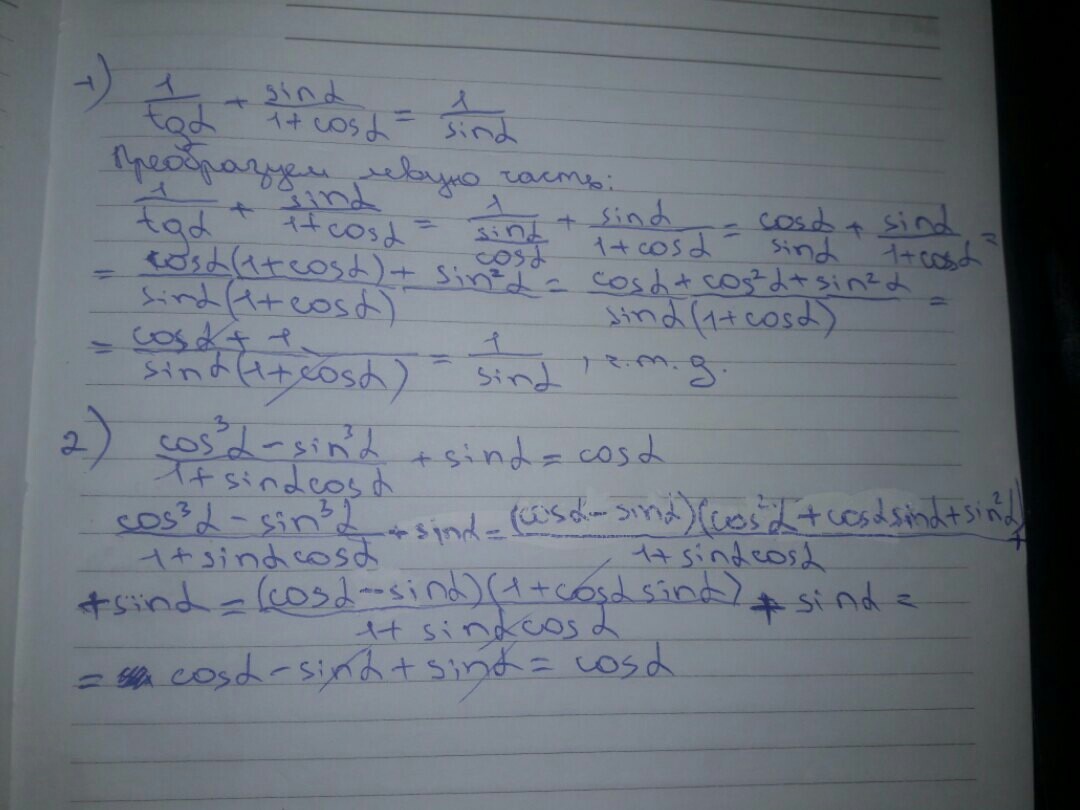 1) 1/tgα + sinα/(1+cosα) = 1/sinα
Преобразуем левую часть:
1/tgα + sinα/(1+cosα) = 1/(sinα/cosα) + sinα/(1+cosα) = cosα/sinα + sinα/(1+cosα) =
= (cosα(1+cosα) + sin²α)/(sinα(1+cosα)) = (cosα + cos²α + sin²α)/(sinα(1+cosα)) =
= (cosα + 1)/(sinα(1+cosα)) = 1/sinα, ч.т.д.
2) (cos³α - sin³α)/(1+sinαcosα) + sinα = cosα
(cos³α - sin³α)/(1+sinαcosα) + sinα = (cosα - sinα)(cos²α + cosαsinα + sin²α)/(1+sinαcosα) +
+ sinα = (cosα - sinα)(1+cosαsinα)/(1+sinαcosα) + sinα =
= cosα - sinα + sinα = cosα